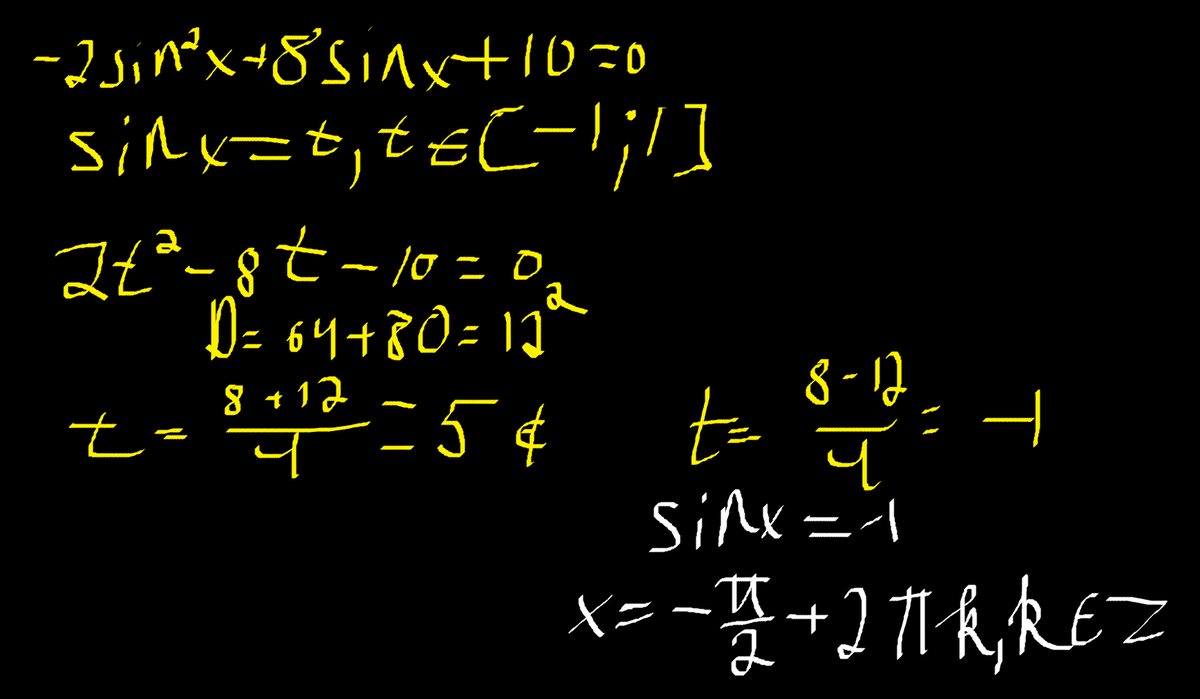 -2sin²x+8sinx+10=0
sinx=t, t∈[-1;1]
2t²-8t-10=0
D=64+80=12²
t=(8+12)/4=5∉
t=(8-12)/4=-1
sinx=-1
x=-π/2+2πk, k∈Z